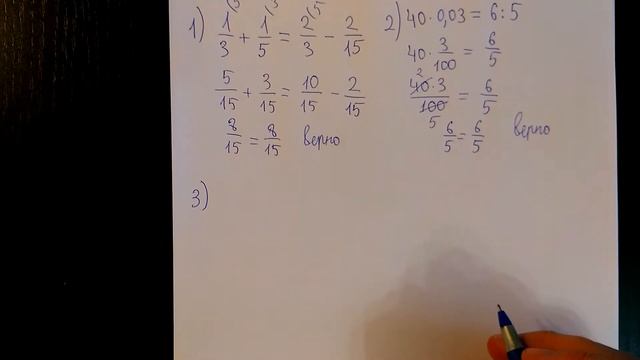 1) 1/3 + 1/5 = 2/3 - 2/15
5/15 + 3/15 = 10/15 - 2/15
8/15 = 8/15 верно
2) 40 · 0,03 = 6 : 5
40 · 3/100 = 6/5
40 · 3/100 = 6/5
6/5 = 6/5 верно
3)